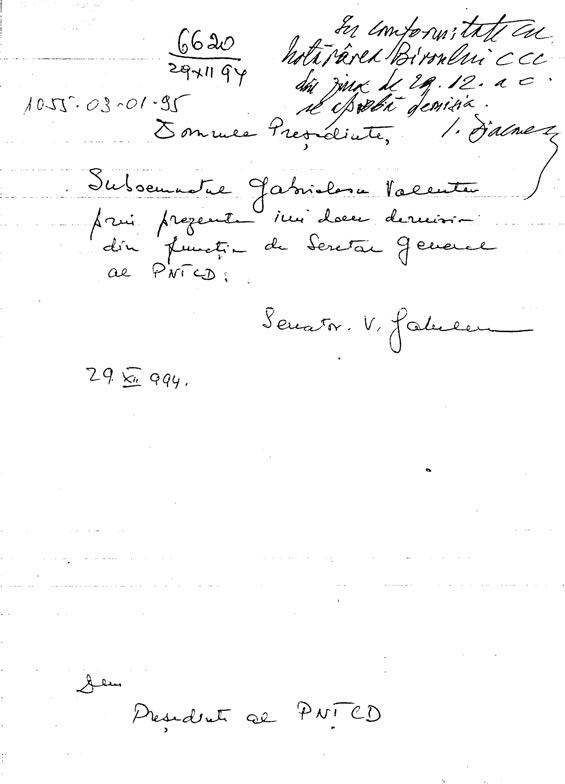 6620
29 XII 94
1055-03-01-95
In conformitate cu
hotărârea Biroului CCC
din ziua de 29.12. a c.
se aprobă demisia.
I. Diaconescu
Domnule Președinte,
Subsemnatul Gabrielescu Valentin
prin prezenta îmi dau demisia
din funcția de Secretar General
al PNȚCD.
Senator. V. Gabrielescu
29 XII 994.
Președinte al PNȚCD